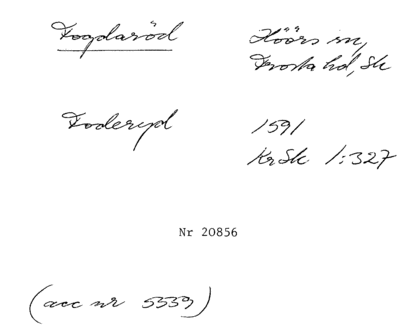 Fogdaröd
Höörs sn,
Frosta hd, Sk
Foderyd
1591
KrSk 1:327
Nr 20856
(acc nr 5339)